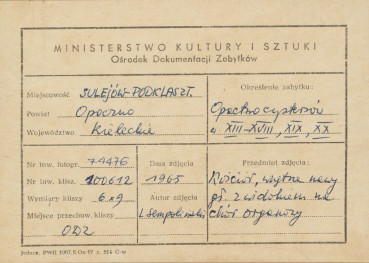 MINISTERSTWO KULTURY I SZTUKI
Ośrodek Dokumentacji Zabytków
Miejscowość SULEJÓW-PODKLASZT.
Powiat Opoczno
Województwo Kieleckie
Określenie zabytku:
Opactwo cystersów
XIII-XVIII, XIX, XX
Nr inw. fotogr. 74476
Nr inw. klisz. 100612
Wymiary kliszy 6x9
Miejsce przechow. kliszy
ODZ
Data zdjęcia
1965
Autor zdjęcia
Przedmiot zdjęcia:
Kościół, wnętrze nawy
gł. z widokiem na
chór organowy